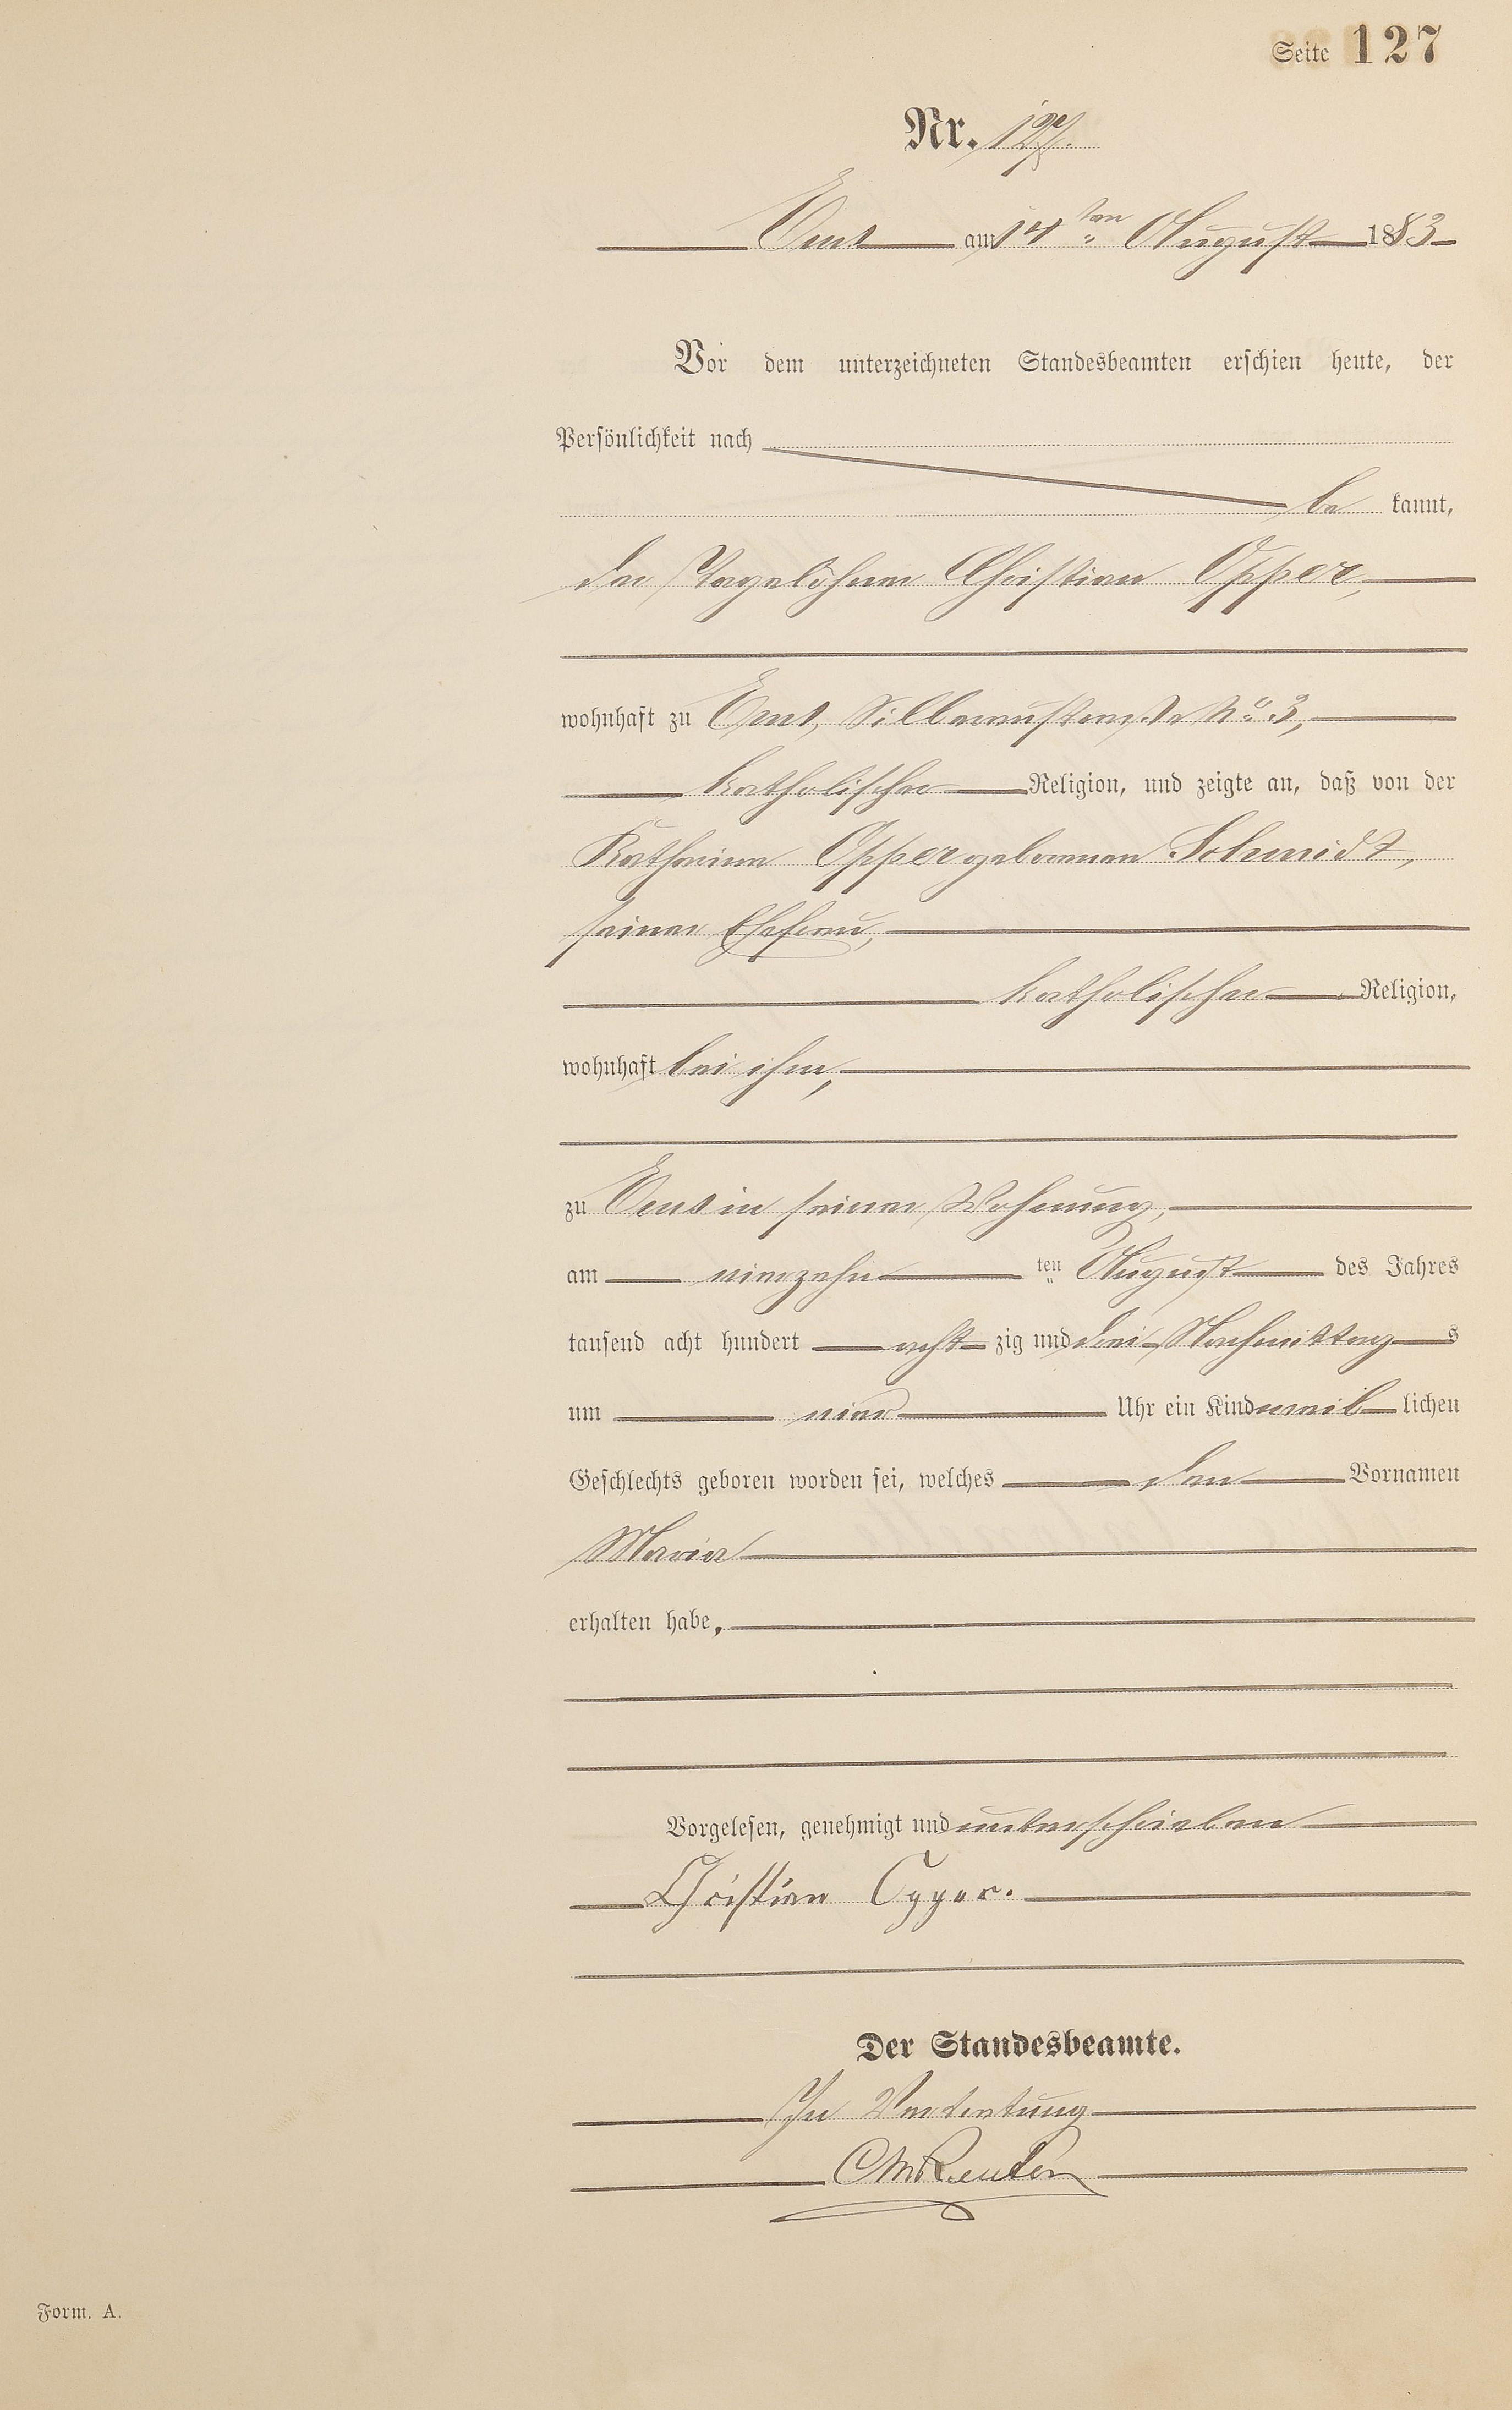 Seite 127
Nr. 127.
Ems am 14ten August 1883
Vor dem unterzeichneten Standesbeamten erschien heute, der
Persönlichkeit nach
be kannt,
der Tagelöhner Christian Opper,
wohnhaft zu Ems, Silbaustraße No 3,
katholischer Religion, und zeigte an, daß von der
Katharina Opper geborenen Schmidt,
seiner Ehefrau,
katholischer Religion,
wohnhaft bei ihm,
zu Ems in seiner Wohnung,
am vierzehn ten August des Jahres
tausend acht hundert acht zig und drei Nachmittag s
um vier Uhr ein Kind weib lichen
Geschlechts geboren worden sei, welches den Vornamen
Maria
erhalten habe,
Vorgelesen, genehmigt und unterschrieben
Christian Opper.
Der Standesbeamte.
In Vertretung
Reuter
Form. A.